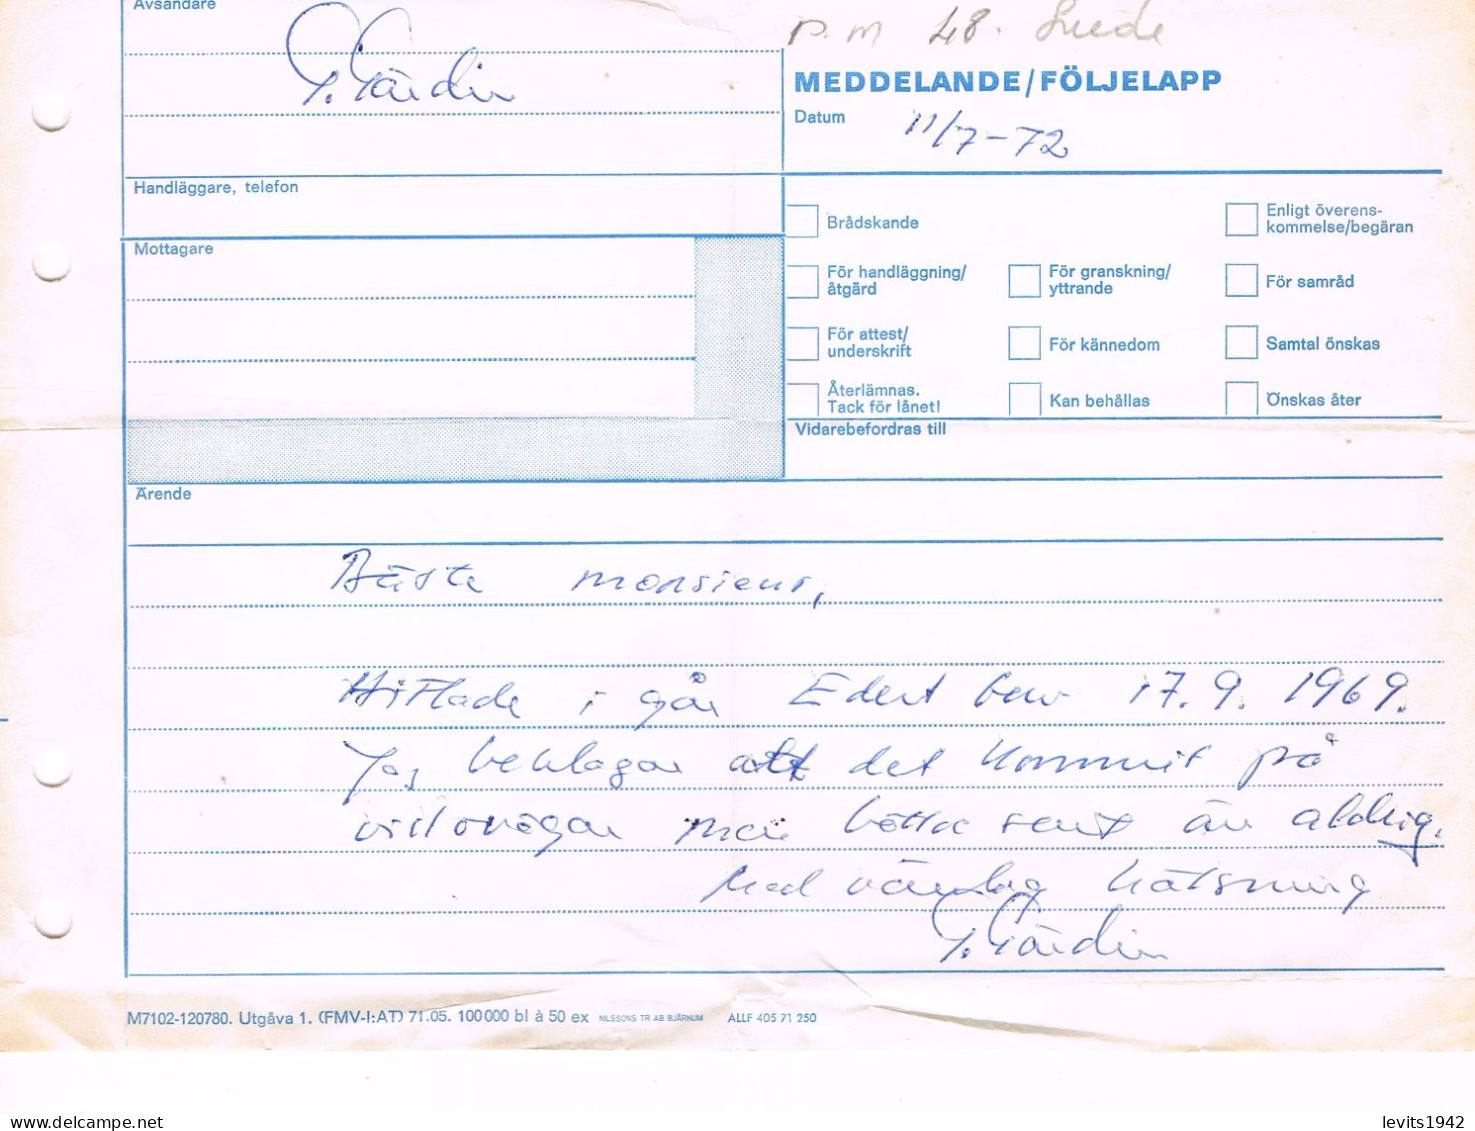 Avsändare
G. Gärdin
P.M 48. Suede
MEDDELANDE/FÖLJELAPP
Datum 11/7-72
Handläggare, telefon
Mottagare
Brådskande
Enligt överens-
kommelse/begäran
För handläggning/
åtgärd
För granskning/
yttrande
För samråd
För attest/
underskrift
För kännedom
Samtal önskas
Återlämnas.
Tack för lånet!
Kan behållas
Önskas åter
Vidarebefordras till
Ärende
Bäste monsieur,
Hittade i går Edert brev 17.9.1969.
Jag beklagar att det kommit på
villovägar men bättre sent än aldrig.
Med vänlig hälsning
G. Gärdin
M7102-120780. Utgåva 1. (FMV-I:AT) 71.05. 100000 bl à 50 ex NILSSONS TR AB BJÄRNUM ALLF 405 71 250
www.delcampe.net
levits1942